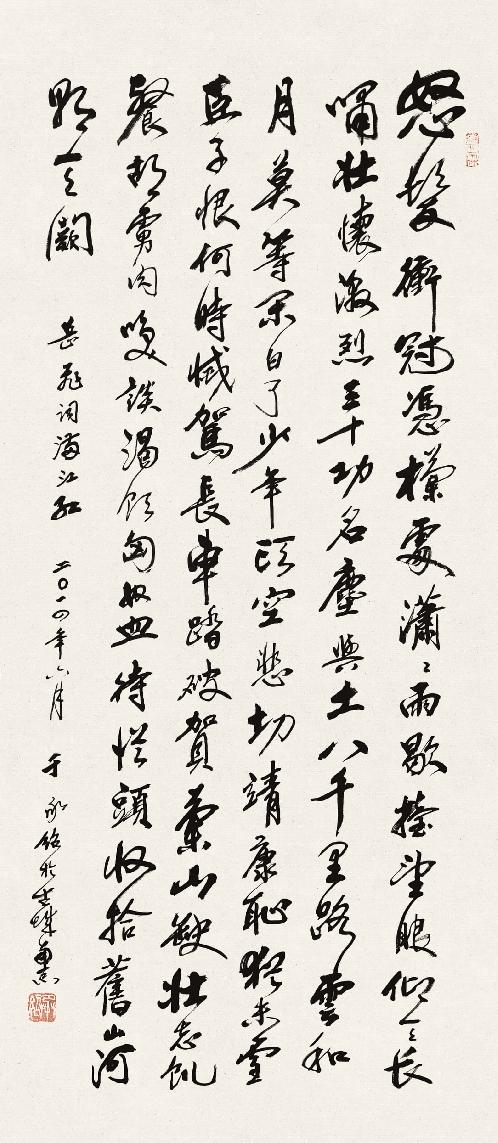 怒髮衝冠憑欄處瀟〻雨歇擡望眼仰天長
嘯壯懷激烈三十功名塵與土八千里路雲和
月莫等閑白了少年頭空悲切靖康恥猶未雪
臣子恨何時憾駕長車踏破賀蘭山缺壯志飢
餐胡虜肉笑談渴飲匈奴血待從頭收拾舊山河
朝天闕 岳飛詞滿江紅 二〇一四年六月 于